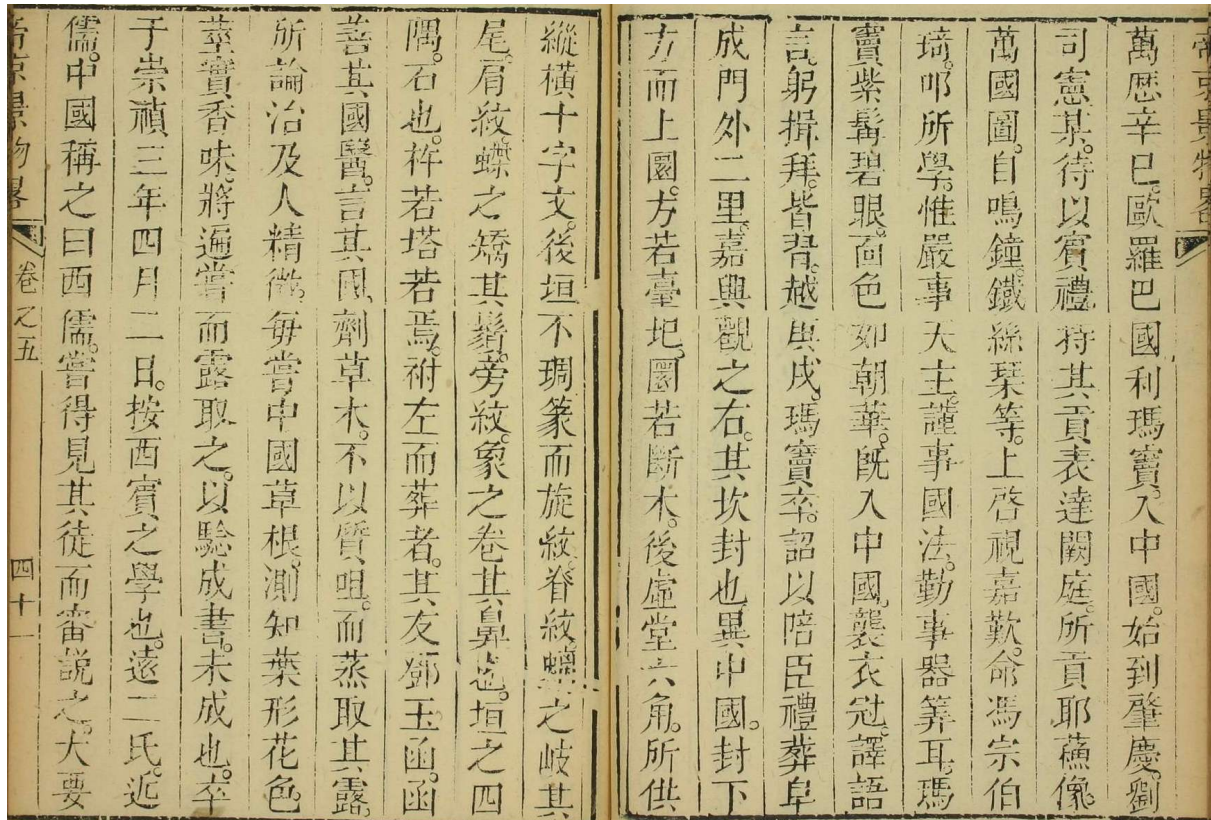 帝京景物畧
萬歷辛巳。歐羅巴國利瑪竇。入中國。始到肇慶。劉
司憲某。待以賓禮。持其貢表達闕庭。所貢耶蘓像。
萬國圖。自鳴鐘。鐵絲琴等。上啓視嘉歎。命馮宗伯
琦。叩所學。惟嚴事天主。謹事國法。勤事器筭耳。瑪
竇紫髯碧眼。面色如朝華。旣入中國。襲衣冠。譯語
言。躬揖拜。皆習。越庚戌。瑪竇卒。詔以陪臣禮葬阜
成門外二里。嘉興觀之右。其坎封也。異中國。封下
方而上圜。方若臺圯。圜若斷木。後虛堂六角。所供
縱橫十字文。後垣不琱篆而旋紋。脊紋。螭之岐其
尾。肩紋。蝶之矯其鬚。旁紋。象之卷其鼻也。垣之四
隅。石也。杵若塔若焉。祔左而葬者。其友鄧玉函。函
善其國醫。言其國劑草木。不以質咀。而蒸取其露。
所論治及人精微。每嘗中國草根。測知葉形花色。
莖實香味。將遍嘗而露取之。以驗成書。未成也。卒
于崇禎三年四月二日。按西賓之學也。遠二氏。近
儒。中國稱之曰西儒。嘗得見其徒而審説之。大要
帝京景物畧 卷之五 四十一